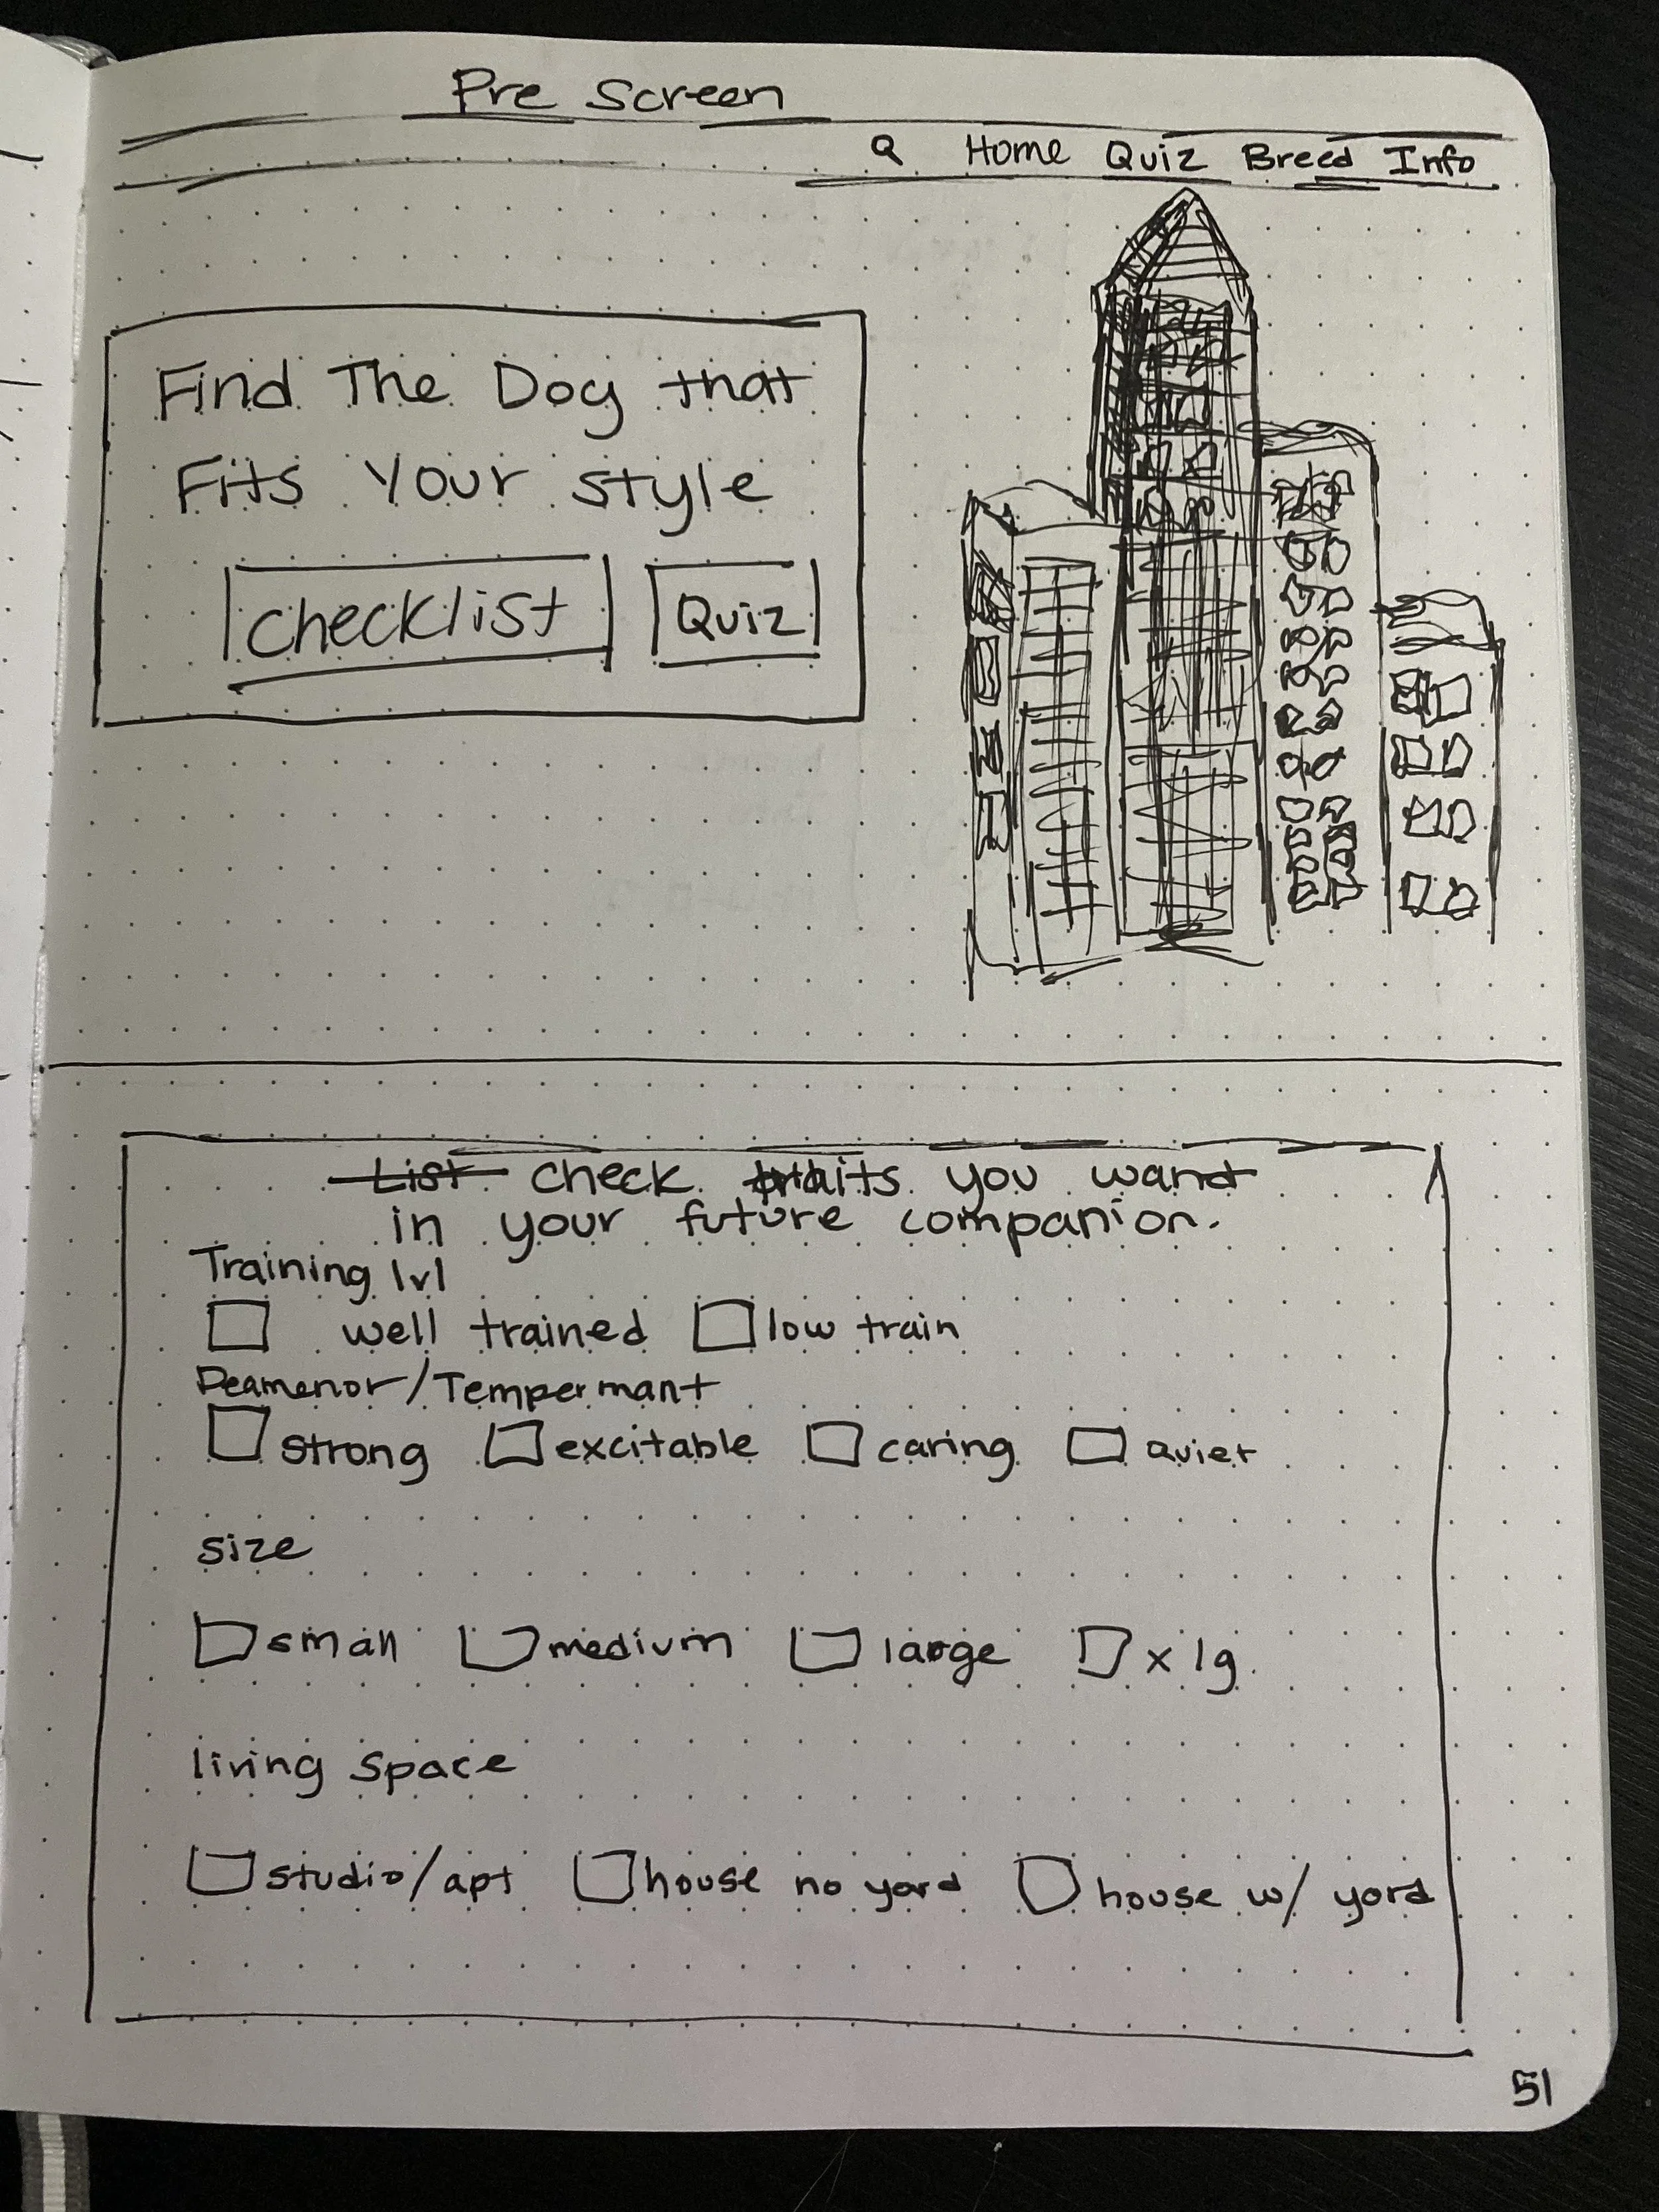 Pre Screen
Q Home Quiz Breed Info
Find The Dog that
Fits Your style
checklist Quiz
List check traits you want
in your future companion.
Training lvl
well trained low train
Deamenor/Tempermant
strong excitable caring quiet
size
small medium large x lg.
living space
studio/apt house no yard house w/ yard
51